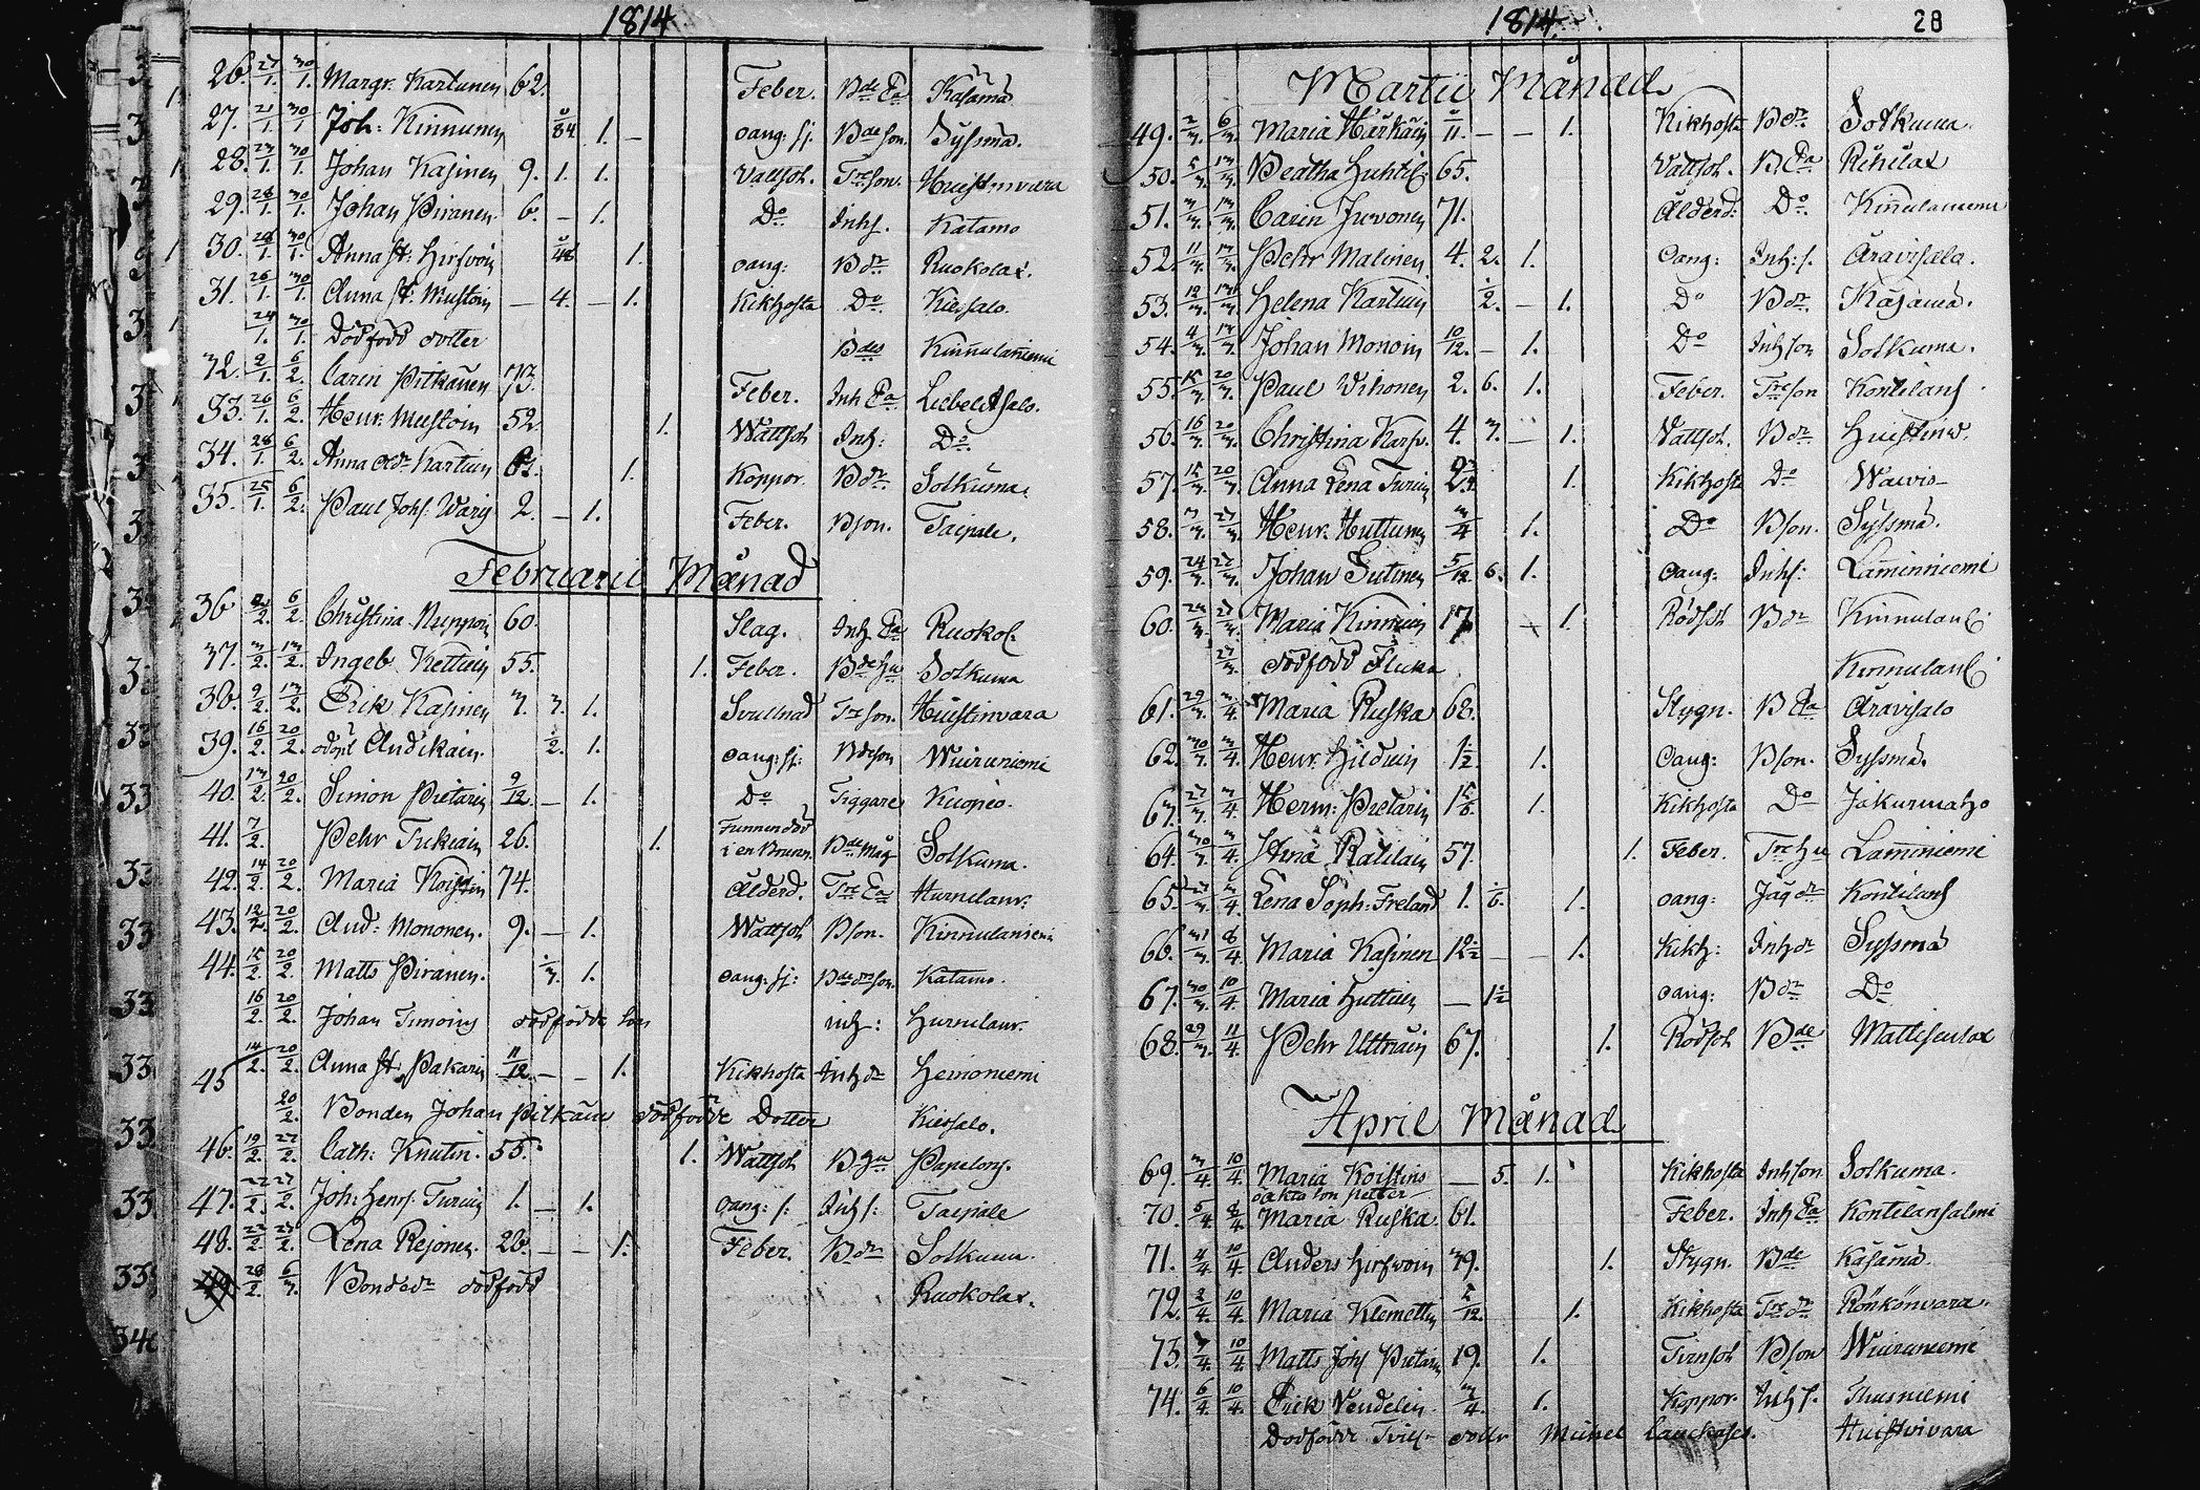 1814
26. 27/1. 30/1. Margr. Kartunen 62. Feber. Bde Ea Käsämä
27. 21/1. 30/1. Joh: Kinnunen 1. – oäng: sj. Bdeson. Sysmä.
28. 23/1. 30/1. Johan Kasinen 9. 1. 1. Vattsot. Treson. Huistinvara
29. 28/1. 30/1. Johan Piranen. 6. – 1. Do Inhs. Katamo
30. 28/1. 30/1. Anna St: Hirfvoin 1. oäng: Bdr Ruokolax.
31. 26/1. 30/1. Anna St: Mustoin – 4. – 1. Kikhosta Do Kiessalo.
24/1. 30/1. Dödfödd dotter Bdes Kinnulaniemi
32. 2/1. 6/2. Carin Pitkänen 73. Feber. Inh Ea Liebelitsalo.
33. 26/1. 6/2. Henr. Mustoin 52. 1. Wattsot Inh: Do
34. 28/1. 6/2. Anna Kartuin 1. Koppor Bdr Solkuma.
35. 25/1. 6/2. Paul Johs. Waris 2. – 1. Feber. Bson. Taipale.
Februarii Månad
36 2/2. 6/2. Christina Nuppon 60. Slag. Inh Ea Ruokol
37. 3/2. 13/2. Ingeb. Kettuin 55. 1. Feber. Bde hu Solkuma
38. 9/2. 13/2. Erik Kasinen 3. 3. 1. Svullnad Treson. Huistinvara
39. 16/2. 20/2. odöpt Andikain. 1/2. 1. oäng: sj: Bdeson Wuiruniemi
40. 13/2. 20/2. Simon Pietarin 9/12. – 1. Do Tiggare Kuopio.
41. 7/2. Pehr Tukiain 26. 1. Funnen död i en Brunn. Bde måg Solkuma.
42. 14/2. 20/2. Maria Koistin 74. Ålderd. Tre Ea Hurnulanr.
43. 12/2. 20/2. And: Mononen. 9. – 1. Wattsot Bson. Kinnulaniemi
44. 15/2. 20/2. Matts Piranen. 1/3. 1. oäng: sj: Bde dr son. Katamo.
16/2. 20/2. Johan Timoins dödfödde son inh: Hurnulanr.
45 14/2. 20/2. Anna St. Pakarin 11/12. – – 1. Kikhosta Inh dr Heinoniemi
20/2. Bonden Johan Pitkäin dödfödde Dotter Kiessalo.
46. 19/2. 27/2. Cath: Knutin. 55. 1. Wattsot B hu Papelons.
47. 22/2. 27/2. Joh: Henrs. Turuin 1. – 1. oäng: s: Inh s: Taipale
48. 22/2. 27/2. Lena Rejonen. 28. – – 1. Feber. Bdr Solkuma.
28/2. 6/3. Bondedr dödfödd Ruokolax.
1814. 28
Martii Månad
49. 2/3. 6/3. Maria Härkäin 11. – – 1. Kikhosta Bdr Solkuma.
50. 5/3. 13/3. Beatha Huhtil: 65. Vattsot. B Ea Rihilax
51. 7/3. 13/3. Carin Juvonen 71. Ålderd: Do Kinnulaniemi
52. 11/3. 13/3. Pehr Malinen 4. 2. 1. Oäng: Inh: s. Aravisalo.
53. 12/3. 13/3. Helena Kartuin 1/2. – 1. Do Bdr Käsämä.
54. 4/3. 13/3. Johan Monoin 10/12. – 1. Do Inhson Solkuma.
55. 15/3. 20/3. Paul Vihonen 2. 6. 1. Feber. Treson Kontilans
56. 16/3. 20/3. Christina Karv. 4. 3. – 1. Vattsot. Bdr Huistinv.
57. 15/3. 20/3. Anna Lena Turuin 1. Kikhosta Do Waivio
58. 7/3. 27/3. Henr. Huttunen 3/4 1. Do Bson. Sysmä.
59. 24/3. 27/3. Johan Sutinen 5/12 6. 1. Oäng: Inhs: Laminniemi
60. 24/3. 27/3. Maria Kinnuin 17 1. Rödsot Bdr Kinnulanl
27/3. dödfödd Flicka Kinnulanl
61. 29/3. 3/4. Maria Ruska 68. Stygn. B Ea Aravisalo
62. 30/3. 3/4. Henr. Hildiein 1/2 1. Oäng: Bson. Sysmä.
63. 27/3. 3/4. Herm: Pietarin 1. Kikhosta Do Jakurinaho
64. 30/3. 3/4. Stina Ratilain 57. 1. Feber. Tre hu Laminiemi
65. 27/3. 3/4. Lena Soph: Freland 1. 1/6. 1. oäng: Jäg dr Kontilans
66. 31/3. 8/4. Maria Kasinen 12 – – 1. Kikh: Inh dr Sysmä
67. 30/3. 10/4. Maria Huttuin – 1 1/2 oäng: Bdr Do
68. 29/3. 11/4. Pehr Uttriain 67. 1. Rödsot Bde Mattisenlax
April Månad
69. 3/4. 10/4. Maria Koistins oäkta son Petter – 5. 1. Kikhosta Inhson Solkuma.
70. 5/4. 8/4. Maria Ruska. 61. Feber. Inh Ea Kontilansalmi
71. 4/4. 10/4. Anders Hirfwoin 39. 1. Stygn. Bde Käsämä.
72. 2/4. 10/4. Maria Klemettin /12. 1. Kikhosta Tre dr Rönkönvara.
73. 7/4. 10/4. Matts Johs Pietarin 19. 1. Tvinsot Bson Wiiruniemi
74. 6/4. 10/4. Erik Vendelin 3/4. 1. Koppor. Inh s. Thusniemi
Dödfödde Tvill– dottr Mickel Lauckases. Huistivara